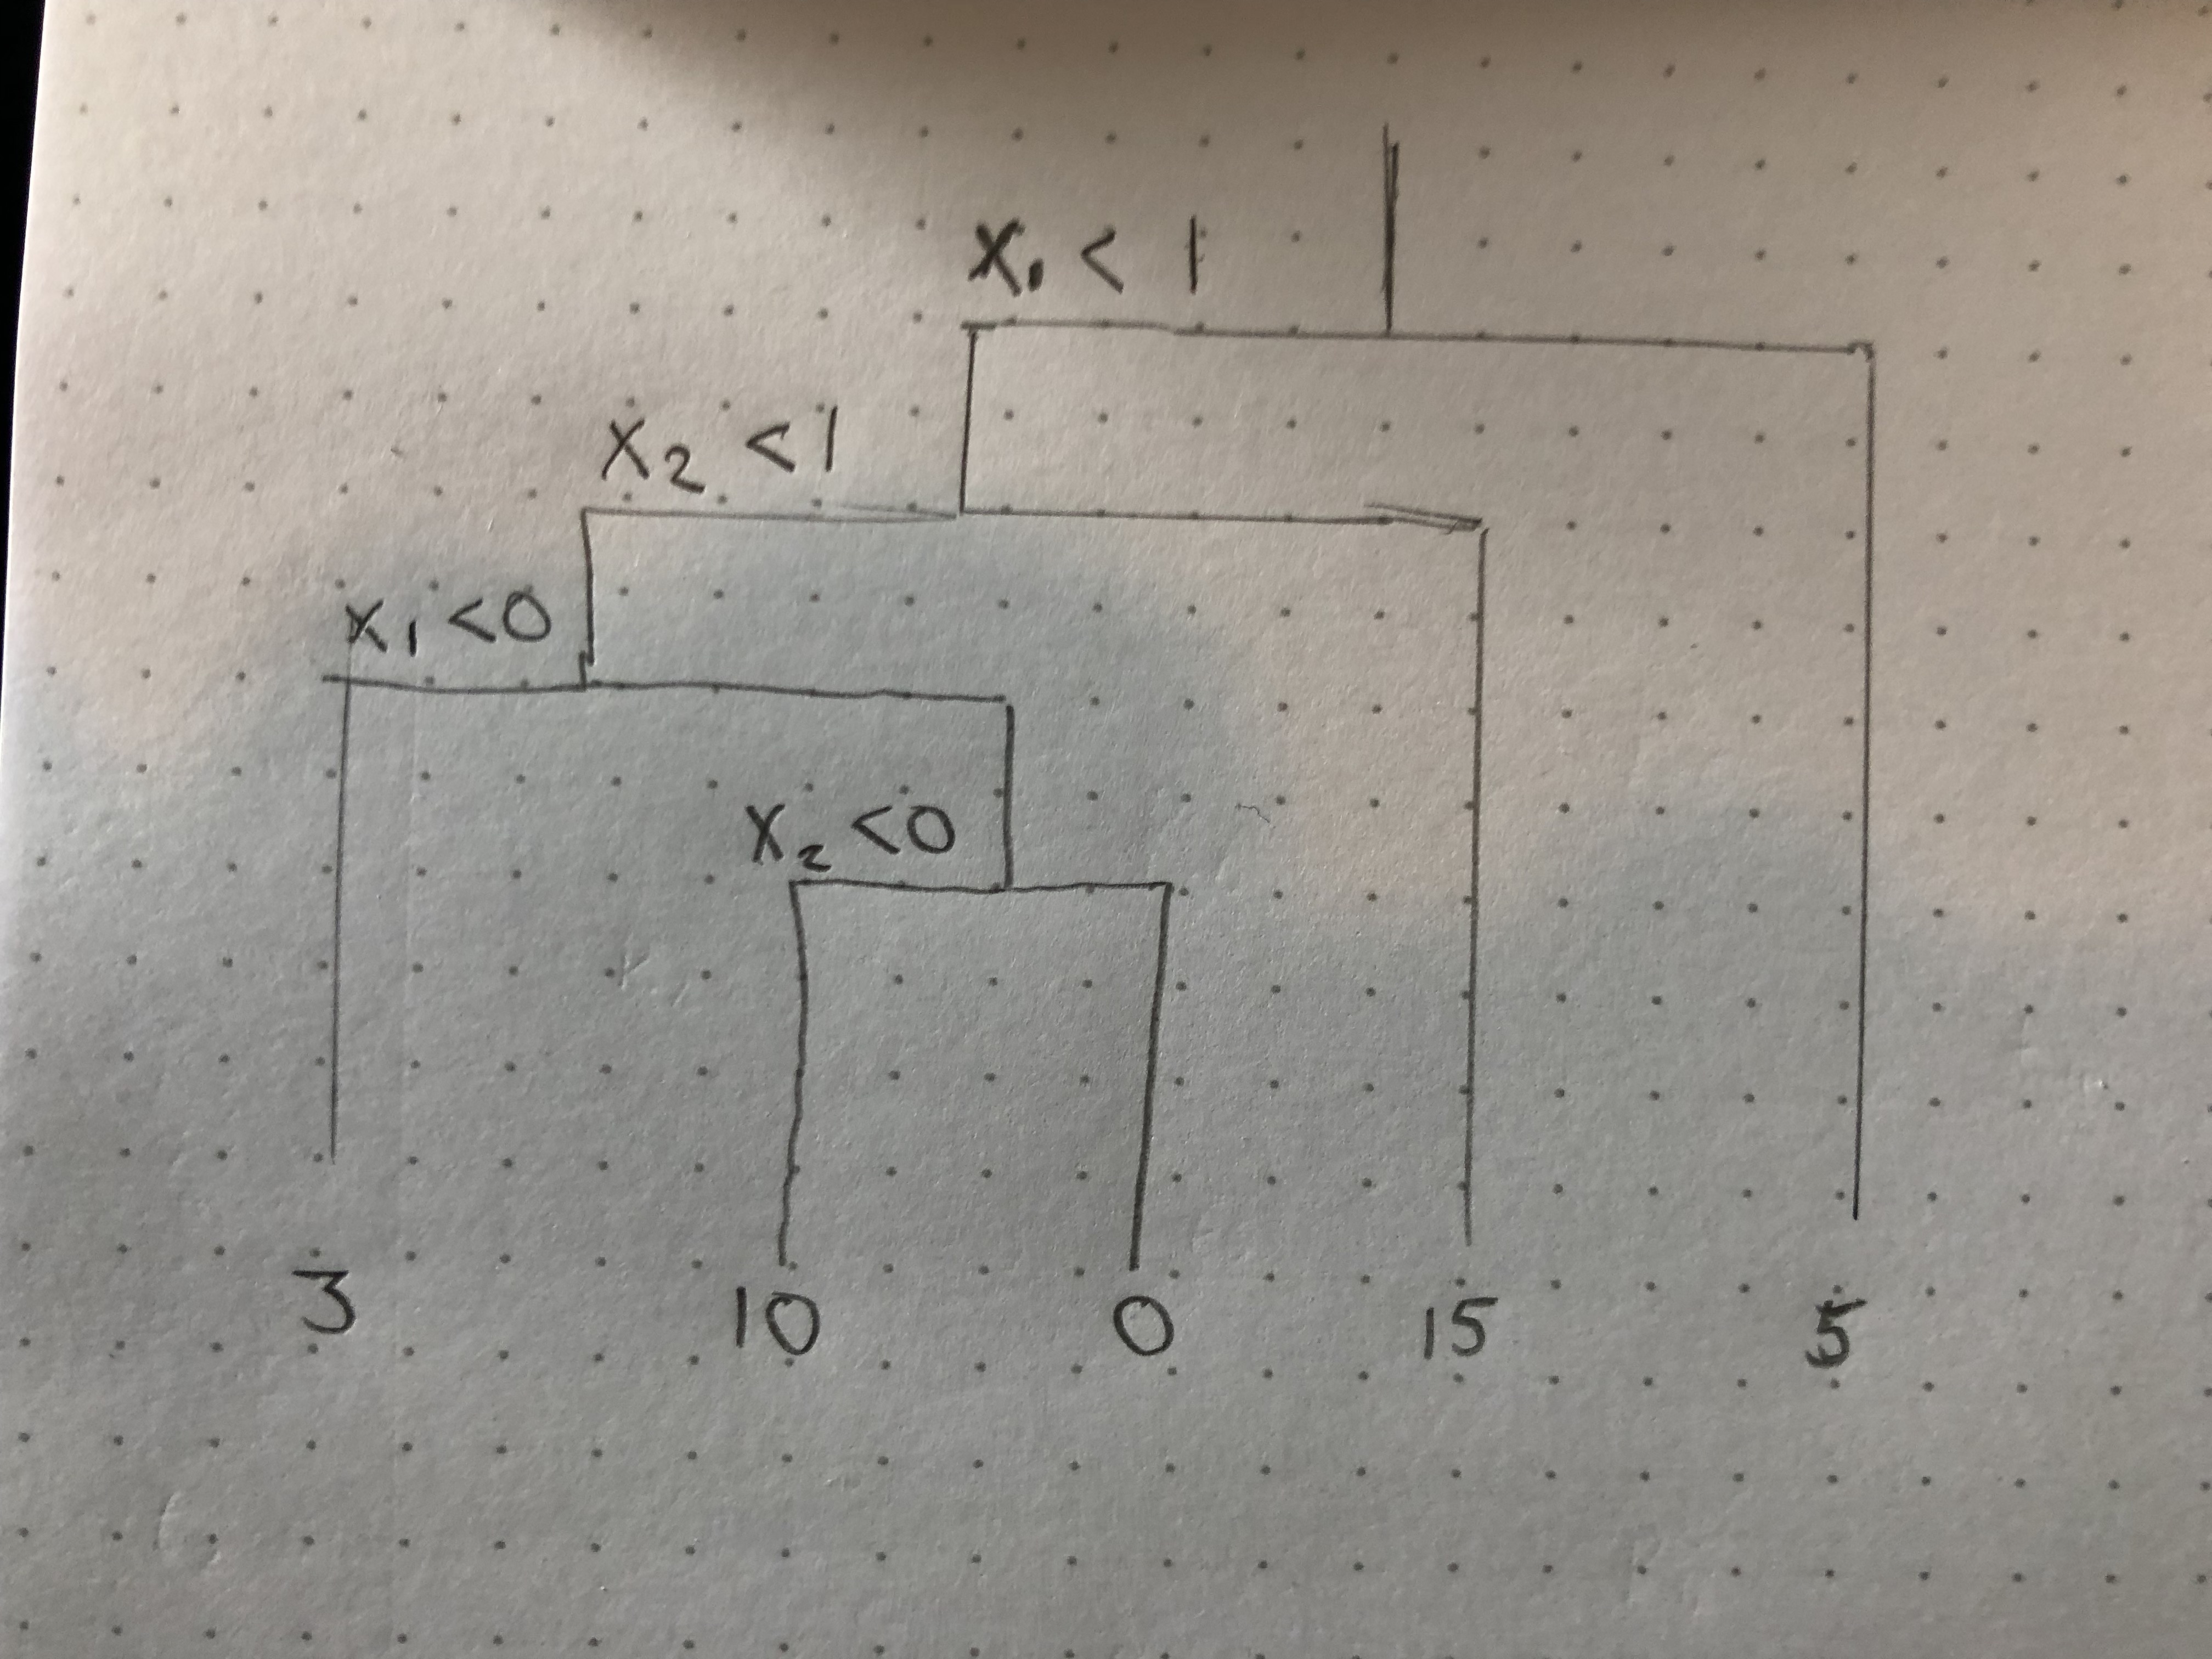 X₁ < 1
X₂ < 1
X₁ < 0
X₂ < 0
3 10 0 15 5